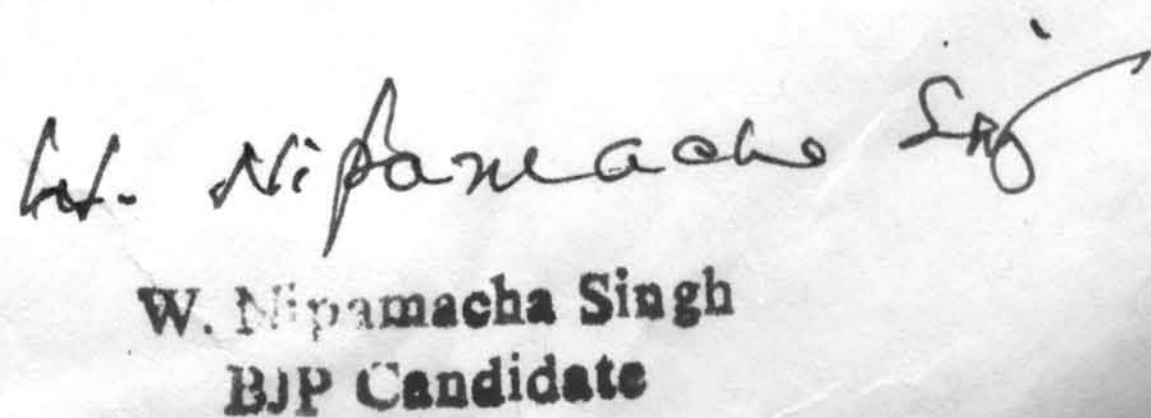 W. Nipamacha Singh
W. Nipamacha Singh
BJP Candidate